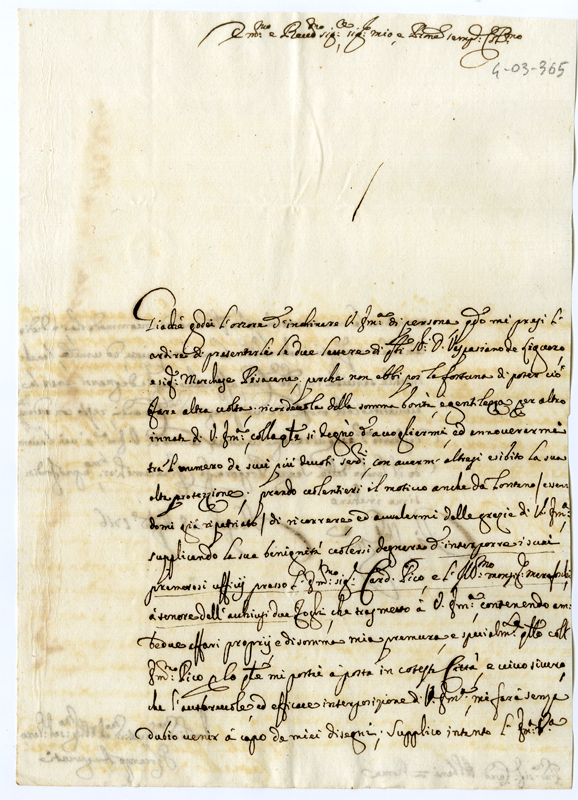 Em.mo e Rev.mo sig.r sig.r mio, e Prone semp.
4-03-365
Giachè godei l'onore d'inchinare V. Em.a di persona q.do mi presi l'
ardire di presentarle le due lettere di D. Vespasiano de Liguoro
e sig.r Marchese Pisacane, perche non ebbi poi la fortuna di poter ciò
fare altra volta. ricordevole della somma bontà, e gentilezza per altro
innata di V. Em.a, colla q.le si degnò d'accogliermi, ed annoverarmi
trà l'numero de suoi più devoti serv.i, con avermi altresi esibito la sua
alta protezzione; prendo volentieri il motivo anche da lontano / essen-
domi già ripatriato / di ricorrere, ed avvalermi delle grazie di V. Em.a,
supplicando la sua benignità volersi degnare d'interporre i suoi
premurosi ufficij presso l'Em.mo sig.r Card. Pico, e l'Ill.mo monsig.r
à tenore dell'acchiusi due fogli, che trasmetto à V. Em.a, contenendo am-
bedue affari proprij, e di somma mia premura, e specialm.te q.llo coll'
Em.mo Pico, p lo q.le mi portai à posta in cotesta Città, e vivo sicuro,
che l'autorevole, ed efficace interposizione di V. Em.a, mi farà senza
dubio venir à capo de miei disegni; Supplico intanto l'Em.za V.a